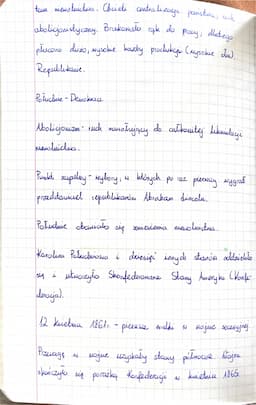 tam niewolnictwo. Chciała centralizacji państwa, ruch
abolicjonistyczny. Brakowało rąk do pracy, dlatego
płacono dużo, wysokie koszty produkcji (wysokie cła).
Republikanie.
Południe - Demokraci
Abolicjonizm - ruch nawołujący do całkowitej likwidacji
niewolnictwa.
Punkt zapalny - wybory, w których po raz pierwszy wygrał
przedstawiciel republikanów Abraham Lincoln.
Południe obawiało się zniesienia niewolnictwa.
Karolina Południowa i dziesięć innych stanów oddzieliło
się i utworzyło Skonfederowane Stany Ameryki (Konfe-
deracja).
12 kwietnia 1861r. - pierwsze walki w wojnie secesyjnej
Przewagę w wojnie uzyskały stany północne. Wojna
skończyła się porażką Konfederacji w kwietniu 1865